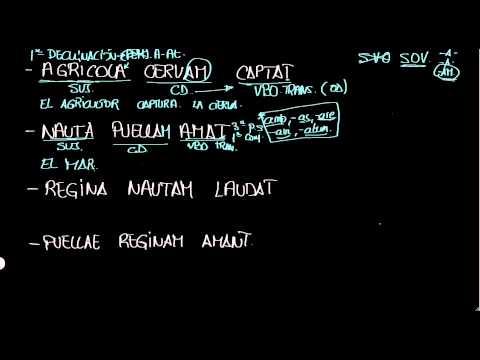 1ª DECLINACIÓN A-AE
SVO SOV. -A-
- AGRICOLA CERVAM CAPTAT -A-
SUJ. CD. VBO TRANS. (CD)
EL AGRICULTOR CAPTURA LA CIERVA.
- NAUTA PUELLAM AMAT 3ª PS amo, -as, -are
SUJ. CD VBO TRAN. 1ª CONJ. -avi, -atum.
EL MAR.
- REGINA NAUTAM LAUDAT
- PUELLAE REGINAM AMANT.